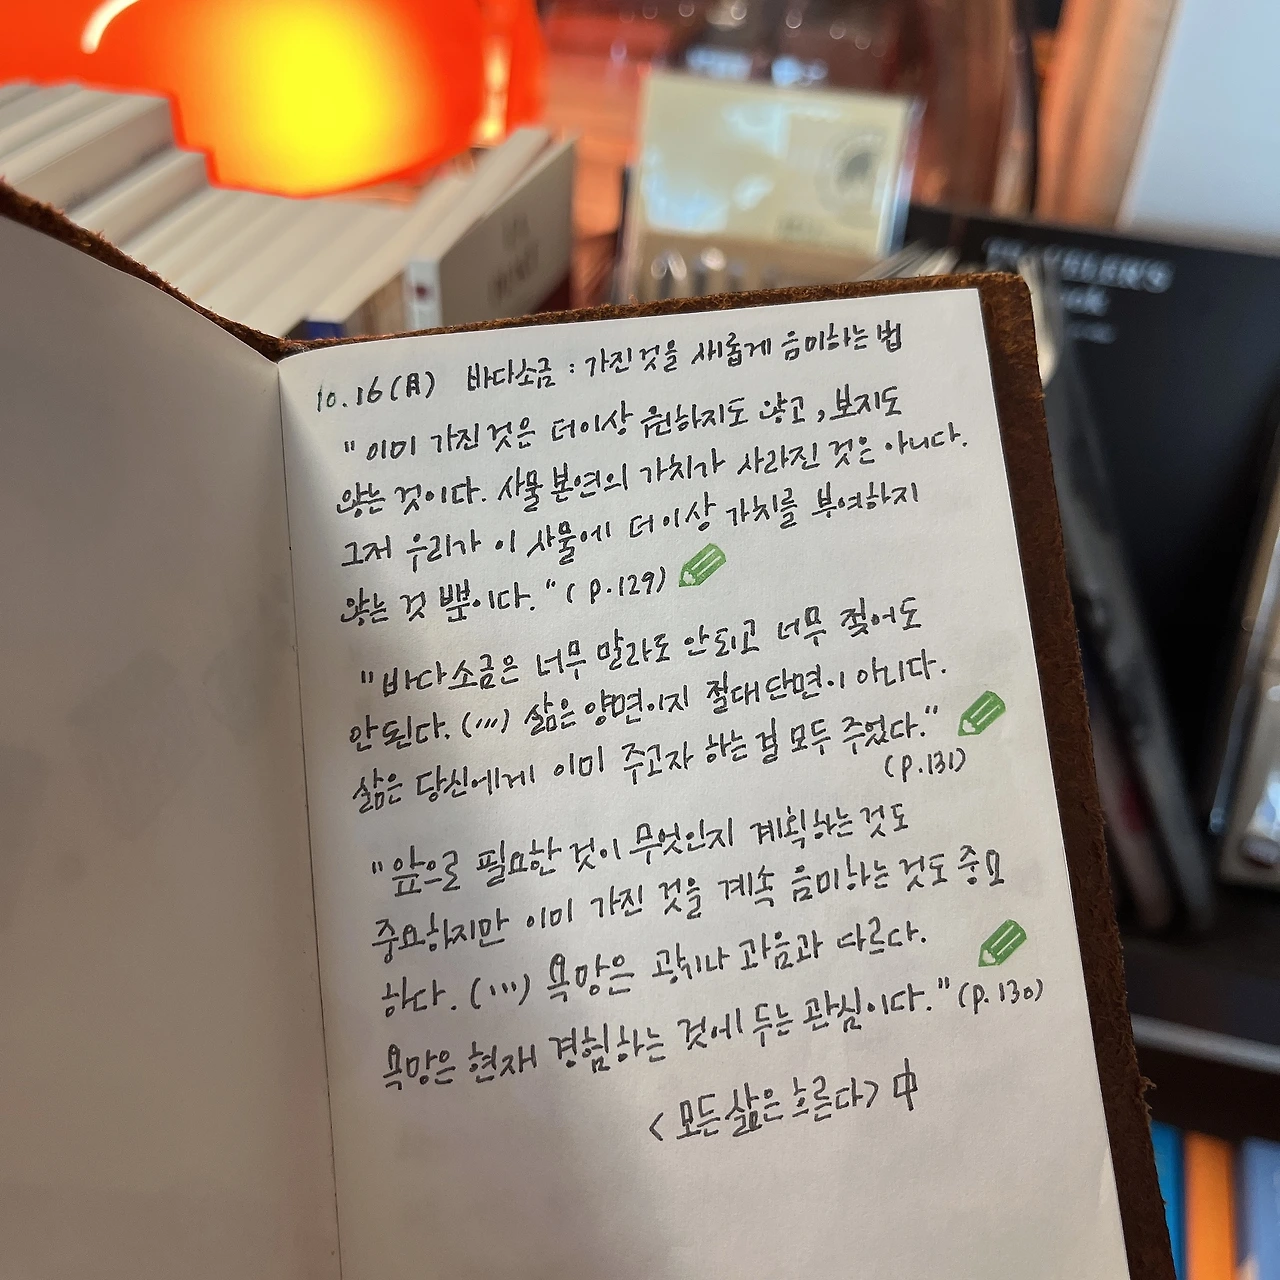 TRAVELER'S
10.16(月) 바다소금 : 가진 것을 새롭게 음미하는 법
"이미 가진 것은 더이상 원하지도 않고, 보지도
않는 것이다. 사물 본연의 가치가 사라진 것은 아니다.
그저 우리가 이 사물에 더이상 가치를 부여하지
않는 것 뿐이다." (p.129)
"바다소금은 너무 말라도 안되고 너무 젖어도
안된다. (...) 삶은 양면이지 절대 단면이 아니다.
삶은 당신에게 이미 주고자 하는 걸 모두 주었다."
(p.131)
"앞으로 필요한 것이 무엇인지 계획하는 것도
중요하지만 이미 가진 것을 계속 음미하는 것도 중요
하다. (...) 욕망은 광기나 과음과 다르다.
욕망은 현재 경험하는 것에 두는 관심이다." (p.130)
<모든 삶은 흐른다> 中